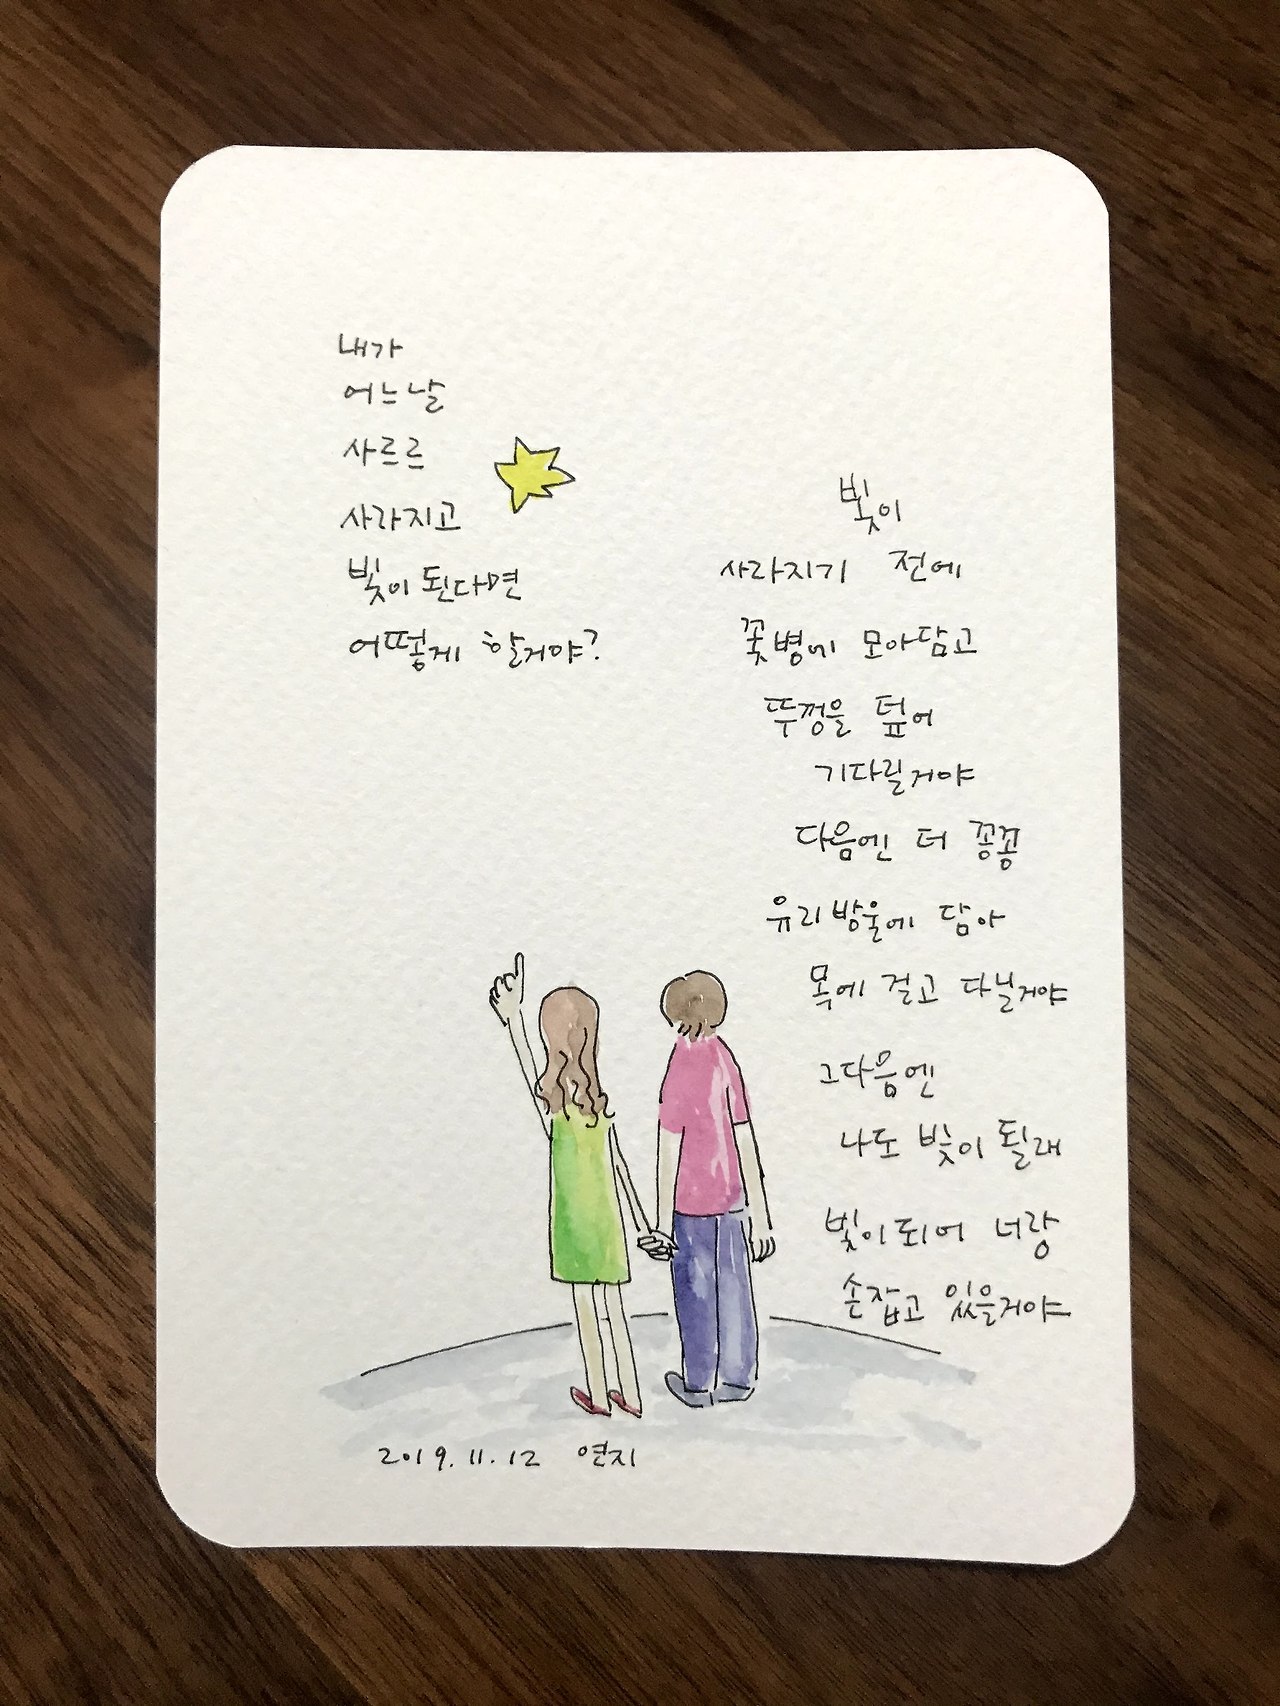 내가
어느날
사르르
사라지고
빛이 된다면
어떻게 할거야?
빛이
사라지기 전에
꽃병에 모아담고
뚜껑을 덮어
기다릴거야
다음엔 더 꽁꽁
유리방울에 담아
목에 걸고 다닐거야
그다음엔
나도 빛이 될래
빛이되어 너랑
손잡고 있을거야
2019.11.12 연지